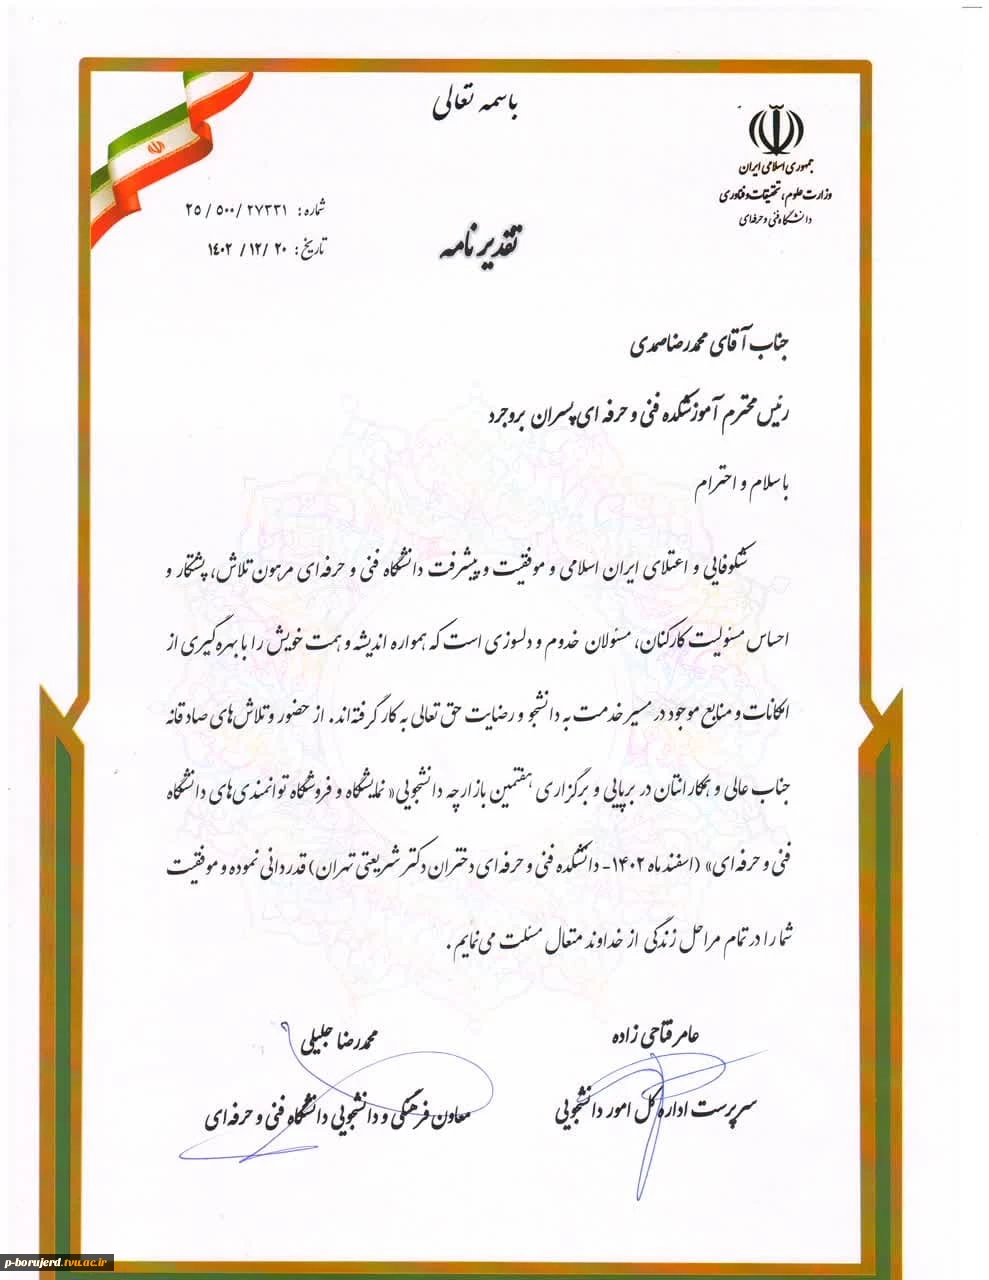 باسمه تعالی
جمهوری اسلامی ایران
وزارت علوم، تحقیقات و فناوری
دانشگاه فنی و حرفه‌ای
شماره: ۲۷۳۳۱/ ۵۰۰/ ۲۵
تاریخ: ۲۰ /۱۲/ ۱۴۰۲
تقدیر نامه
جناب آقای محمدرضا صمدی
رئیس محترم آموزشکده فنی و حرفه ای پسران بروجرد
با سلام و احترام
شکوفایی و اعتلای ایران اسلامی و موفقیت و پیشرفت دانشگاه فنی و حرفه‌ای مرهون تلاش، پشتکار و
احساس مسئولیت کارکنان، مسئولان خدوم و دلسوزی است که همواره اندیشه و همت خویش را با بهره گیری از
امکانات و منابع موجود در مسیر خدمت به دانشجو و رضایت حق تعالی به کار گرفته‌اند. از حضور و تلاش‌های صادقانه
جناب عالی و همکارانتان در برپایی و برگزاری هفتمین بازارچه دانشجویی« نمایشگاه و فروشگاه توانمندی‌های دانشگاه
فنی و حرفه‌ای» (اسفند ماه ۱۴۰۲- دانشکده فنی و حرفه‌ای دختران دکتر شریعتی تهران) قدردانی نموده و موفقیت
شما را در تمام مراحل زندگی از خداوند متعال مسئلت می‌نمایم.
عامر فتاحی زاده
سرپرست اداره کل امور دانشجویی
محمدرضا جلیلی
معاون فرهنگی و دانشجویی دانشگاه فنی و حرفه‌ای
p-borujerd.tvu.ac.ir